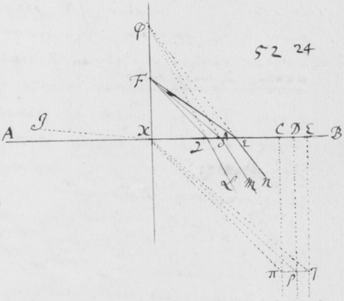 φ
52 24
F
A g x 2 δ ε C D E B
L m n
π ρ η